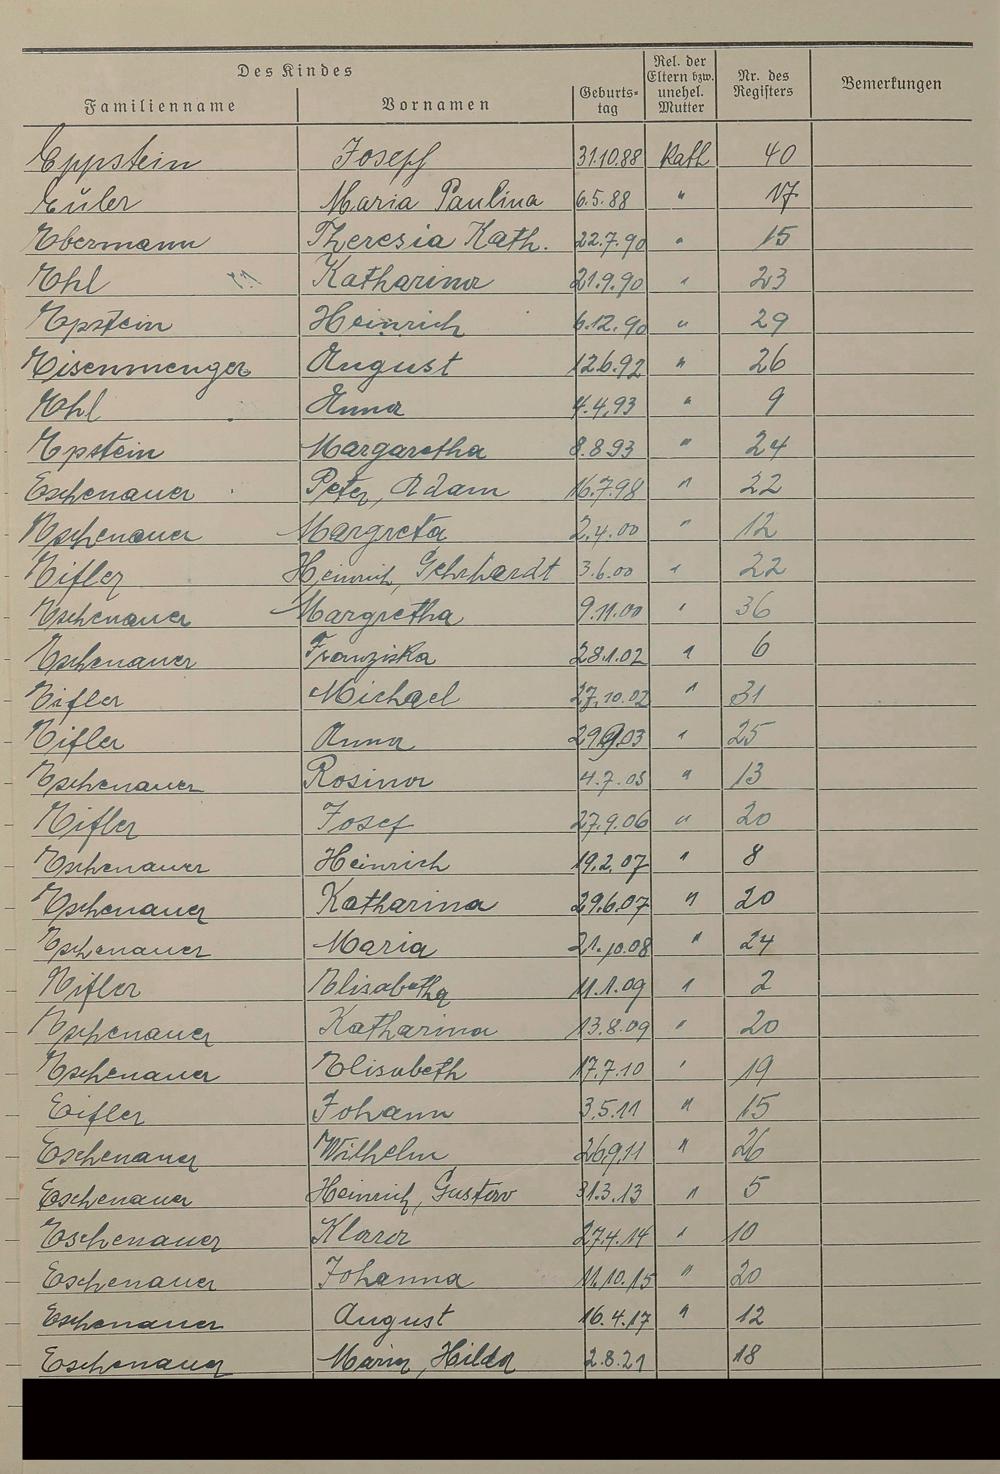 Des Kindes
Familienname Vornamen Geburtstag Rel. der Eltern bzw. unehel. Mutter Nr. des Registers Bemerkungen
Eppstein Josepf 31.10.88 Kath 40
Euler Maria Paulina 6.5.88 " 17
Ebermann Theresia Kath. 22.7.90 " 15
Ehl Katharina 21.9.90 " 23
Epstein Heinrich 6.12.90 " 29
Eisenmenger August 12.6.92 " 26
Ehl Anna 4.4.93 " 9
Epstein Margaretha 8.8.93 " 24
Eschenauer Peter, Adam 16.7.98 " 22
Eschenauer Margreta 2.4.00 " 12
Eifler Heinrich, Gehrhardt 3.6.00 " 22
Eschenauer Margretha 9.11.00 " 36
Eschenauer Franziska 28.1.02 " 6
Eifler Michael 27.10.02 " 31
Eifler Anna 29.9.03 " 25
Eschenauer Rosina 4.7.05 " 13
Eifler Josef 27.9.06 " 20
Eschenauer Heinrich 19.2.07 " 8
Eschenauer Katharina 29.6.07 " 20
Eschenauer Maria 21.10.08 " 24
Eifler Elisabetha 11.1.09 " 2
Eschenauer Katharina 13.8.09 " 20
Eschenauer Elisabeth 17.7.10 " 19
Eifler Johann 3.5.11 " 15
Eschenauer Wilhelm 26.9.11 " 26
Eschenauer Heinrich, Gustav 31.3.13 " 5
Eschenauer Klara 27.4.14 " 10
Eschenauer Johanna 11.10.15 " 20
Eschenauer August 16.4.17 " 12
Eschenauer Maria, Hilda 2.8.21 18